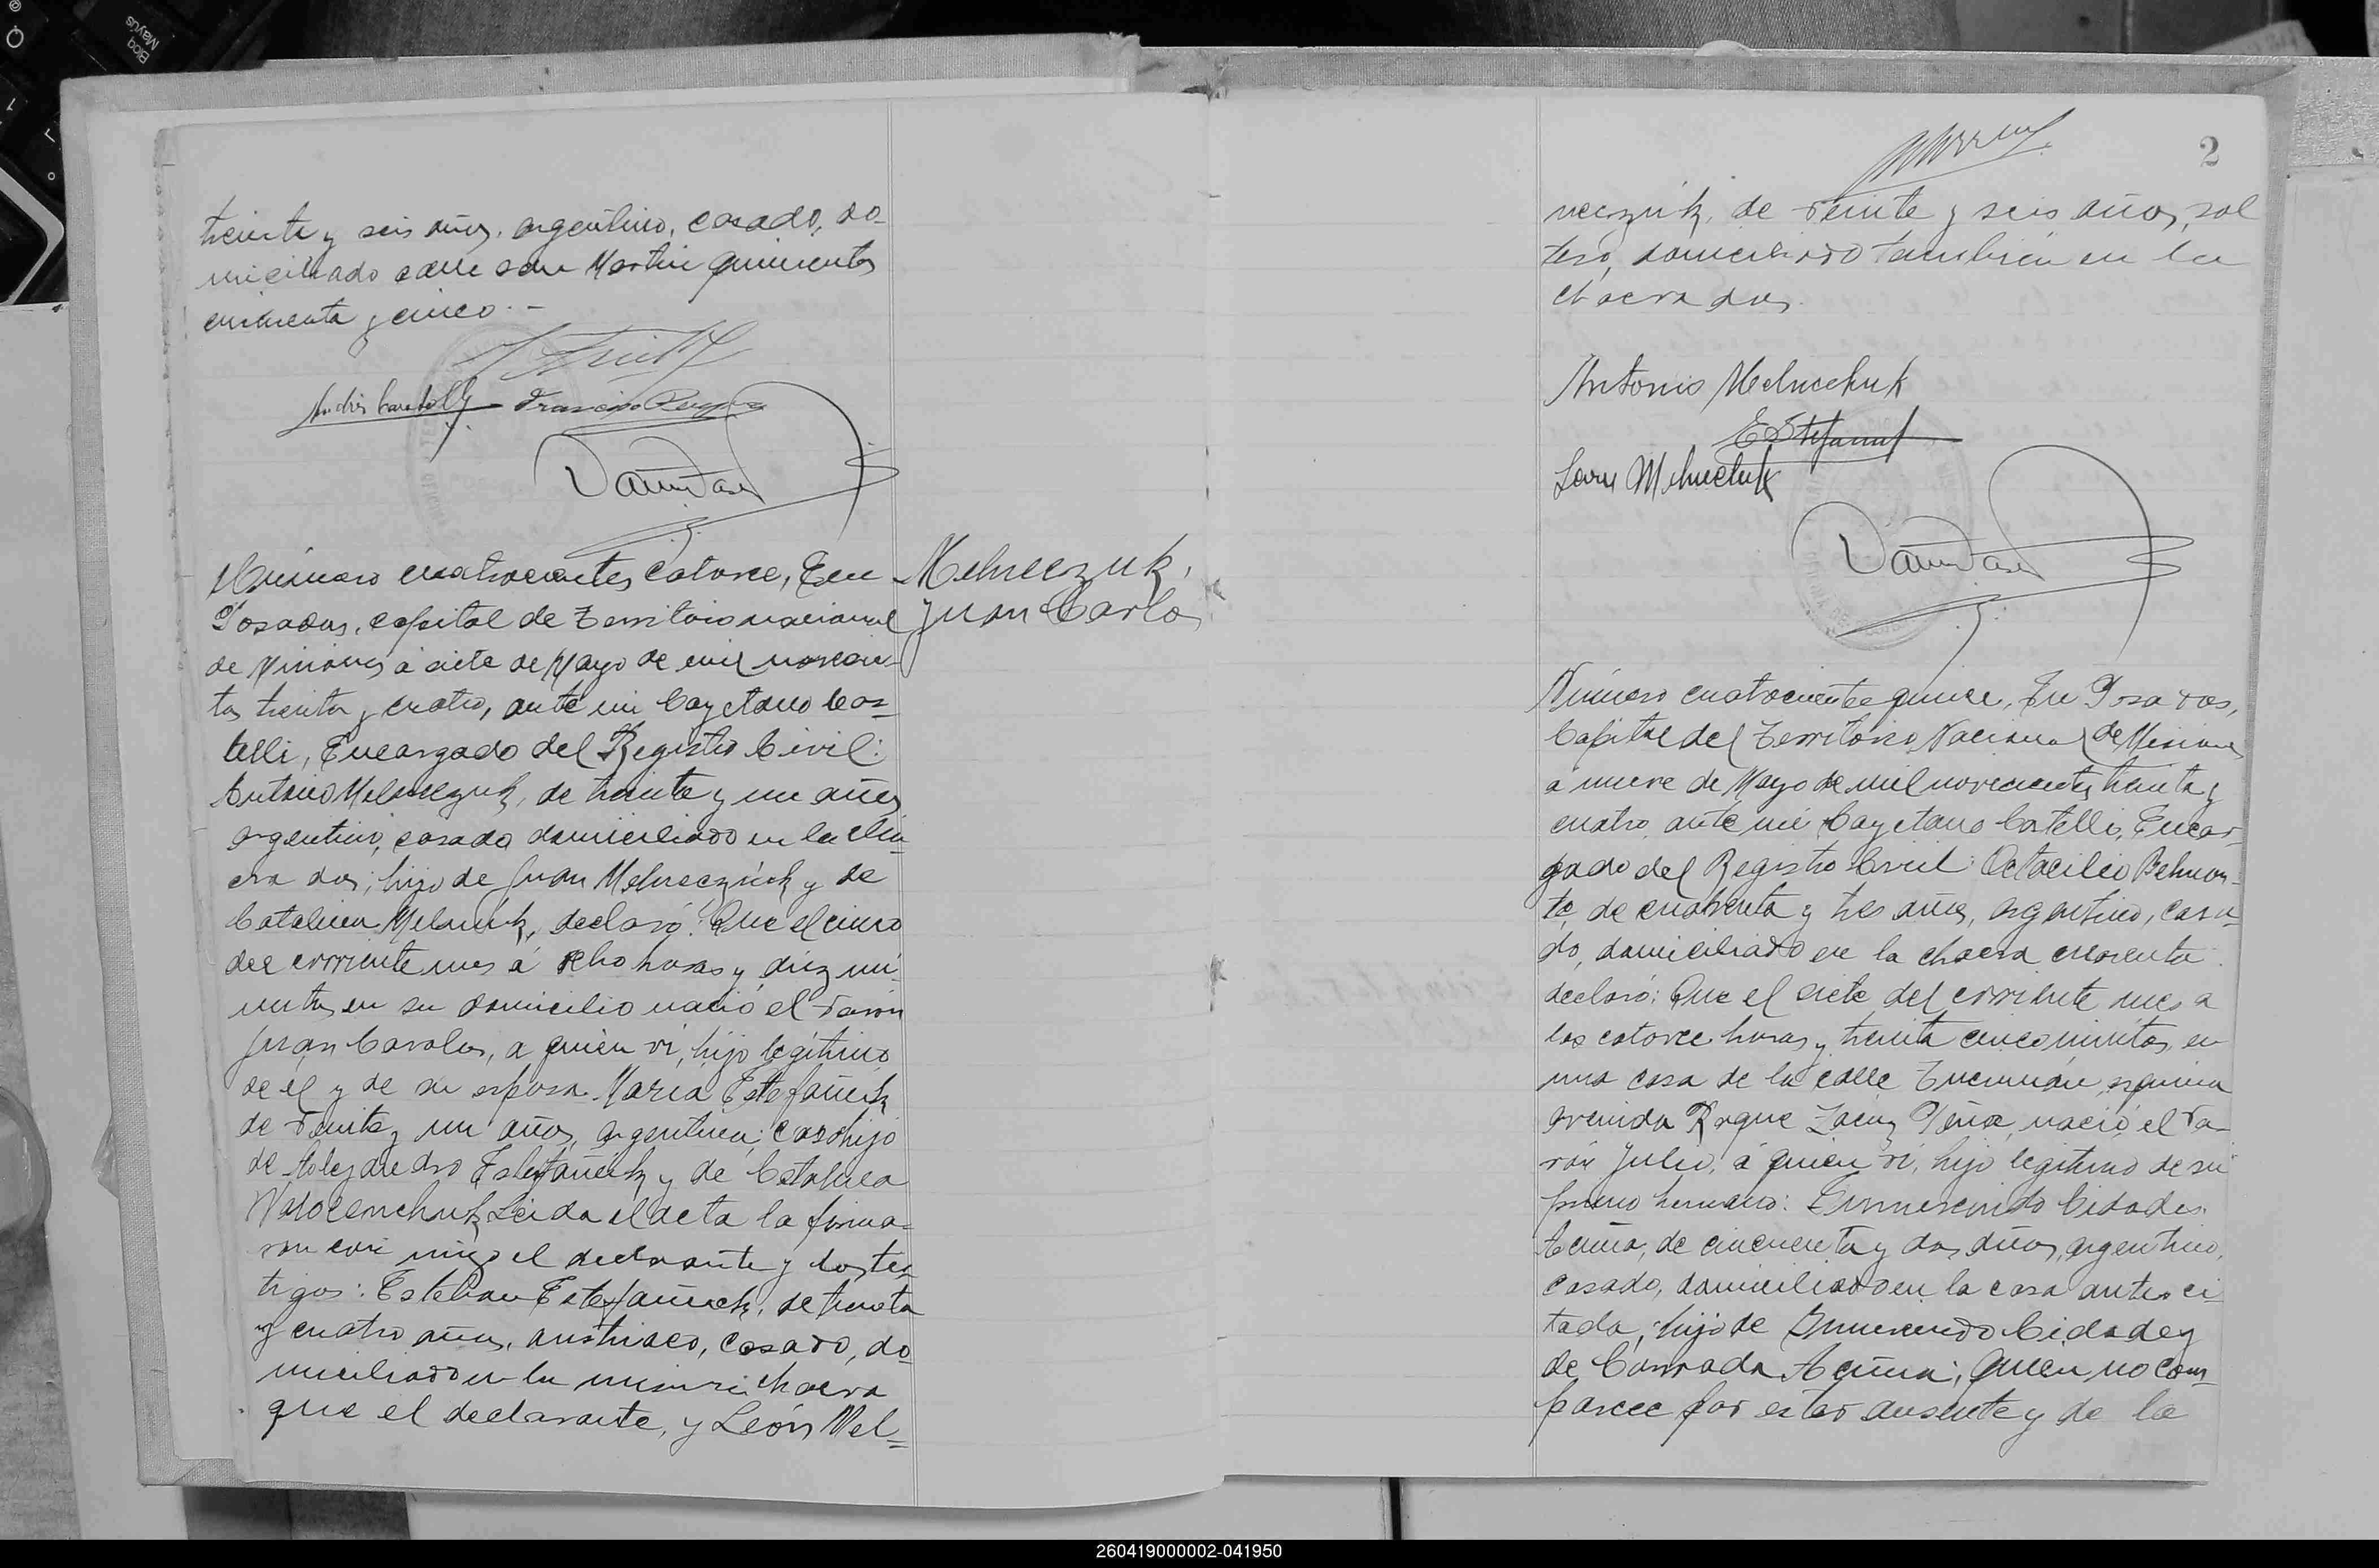 treinta y seis años, argentino, casado, do-
miciliado calle San Martin quinientos
cincuenta y cinco.-
Número cuatrocientos catorce, En
Posadas, capital de Territorio nacional
de Misiones á siete de Mayo de mil novecien-
tos treinta y cuatro, ante mi Cayetano Cas-
telli, Encargado del Registro Civil:
Antonio Melneczuk, de treinta y un años
argentino, casado domiciliado en la cha-
cra dos; hijo de Juan Melneczuk y de
Catalina Melnik, declaró: Que el cinco
del corriente mes á ocho horas y diez mi-
nutos en su domicilio nació el varón
Juan Carolos, a quien vi, hijo legítimo
de él y de su esposa María Estefañuk
de veinte y un años, argentina; hijo
de Alejandro Estefañuk y de Catalina
Leida el acta la firma-
ron con migo el declarante y los tes-
tigos: Esteban Estefañuck, de treinta
y cuatro años, austriaco, casado, do-
miciliado en la misma chacra
que el declarante, y León Mel-
Melneczuk,
Juan Carlos
2
neczuk, de veinte y seis años, sol
tero, domiciliado también en la
chacra dos.
Antonio Melnechuk
E Stefanuk
Leon Melnechuk
Número cuatrocientos quince, En Posadas,
Capital del Territorio Nacional de Misiones
á nueve de Mayo de mil novecientos treinta y
cuatro, ante mi Cayetano Castelli, Encar-
gado del Registro Civil: Octacilio Belmon-
te, de cuarenta y tres años, argentino, casa-
do, domiciliado en la chacra cuarenta
declaró: Que el siete del corriente mes a
las catorce horas y treinta cinco minutos, en
una casa de la calle Tucumán, esquina
avenida Roque Saenz Peña, nació el va-
rón Julio, á quien vi, hijo legítimo de su
primo hermano: Gumercindo Cidades
Acuña, de cincuenta y dos años, argentino,
casado, domiciliado en la casa antes ci-
tada, hijo de Gumercindo Cidade y
de Conrada Acuña; quien no com-
parece por estar ausente y de la
260419000002-041950